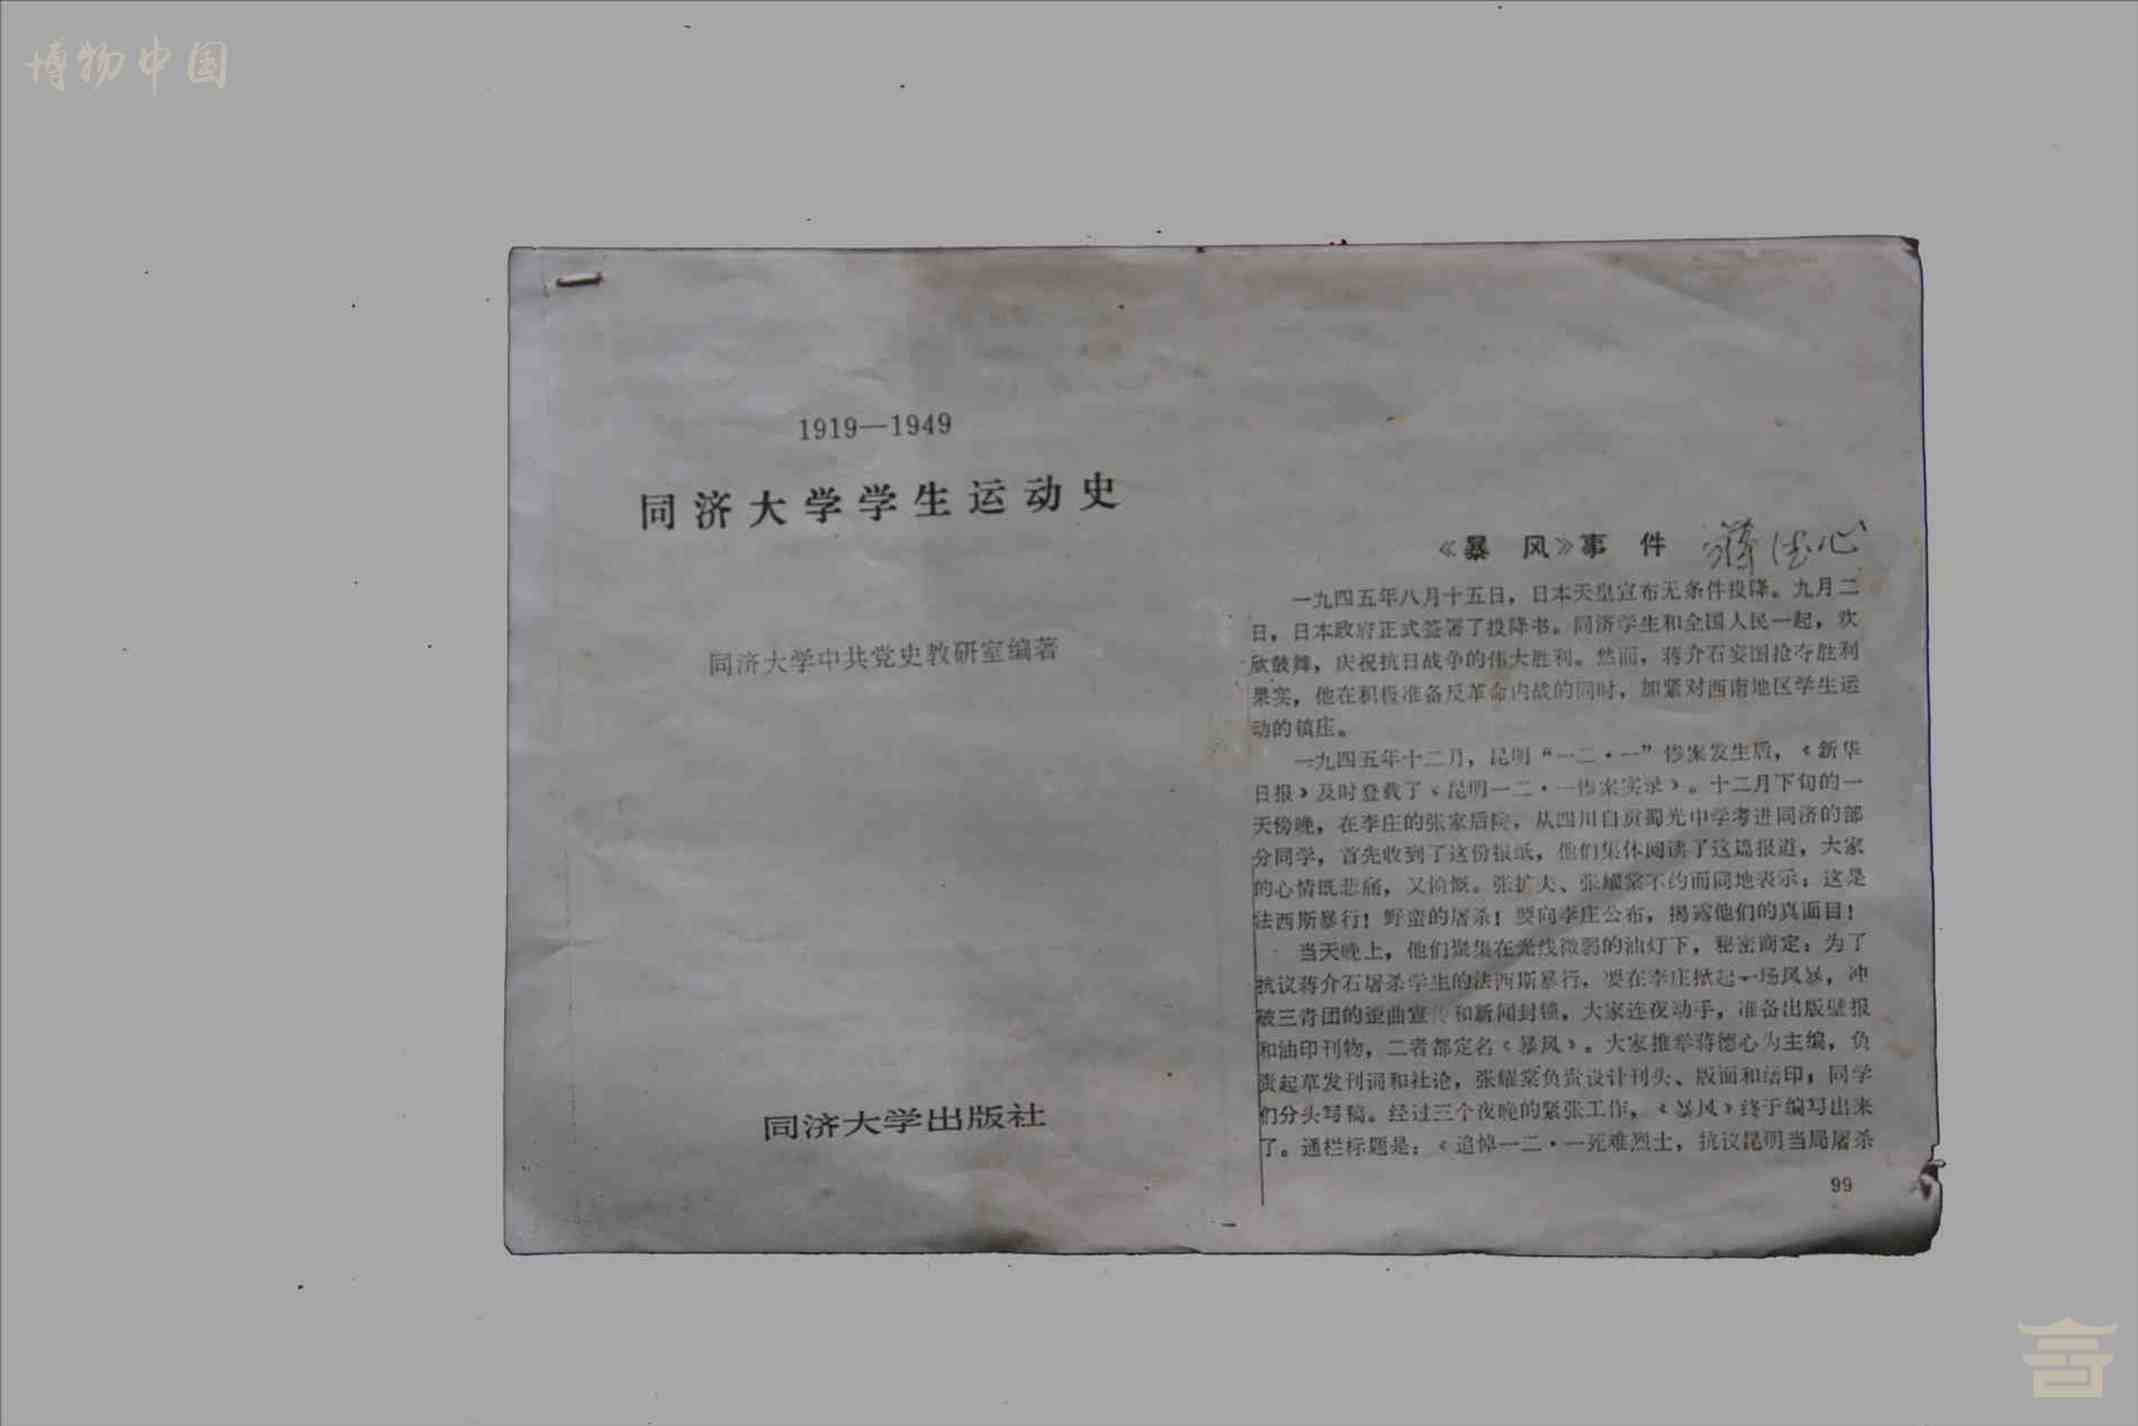 博物中国
1919—1949
同济大学学生运动史
同济大学中共党史教研室编著
同济大学出版社
《暴风》事件 蒋德心
一九四五年八月十五日，日本天皇宣布无条件投降。九月二
日，日本政府正式签署了投降书。同济学生和全国人民一起，欢
欣鼓舞，庆祝抗日战争的伟大胜利。然而，蒋介石妄图抢夺胜利
果实，他在积极准备反革命内战的同时，加紧对西南地区学生运
动的镇压。
一九四五年十二月，昆明“一二·一”惨案发生后，《新华
日报》及时登载了《昆明一二·一惨案实录》。十二月下旬的一
天傍晚，在李庄的张家后院，从四川自贡蜀光中学考进同济的部
分同学，首先收到了这份报纸，他们集体阅读了这篇报道，大家
的心情既悲痛，又愤慨。张扩夫、张耀棠不约而同地表示：这是
法西斯暴行！野蛮的屠杀！要向李庄公布，揭露他们的真面目！
当天晚上，他们聚集在光线微弱的油灯下，秘密商定：为了
抗议蒋介石屠杀学生的法西斯暴行，要在李庄掀起一场风暴，冲
破三青团的歪曲宣传和新闻封锁，大家连夜动手，准备出版壁报
和油印刊物，二者都定名《暴风》。大家推举蒋德心为主编，负
责起草发刊词和社论，张耀棠负责设计刊头、版面和誊印，同学
们分头写稿。经过三个夜晚的紧张工作，《暴风》终于编写出来
了。通栏标题是：《追悼一二·一死难烈士，抗议昆明当局屠杀
99